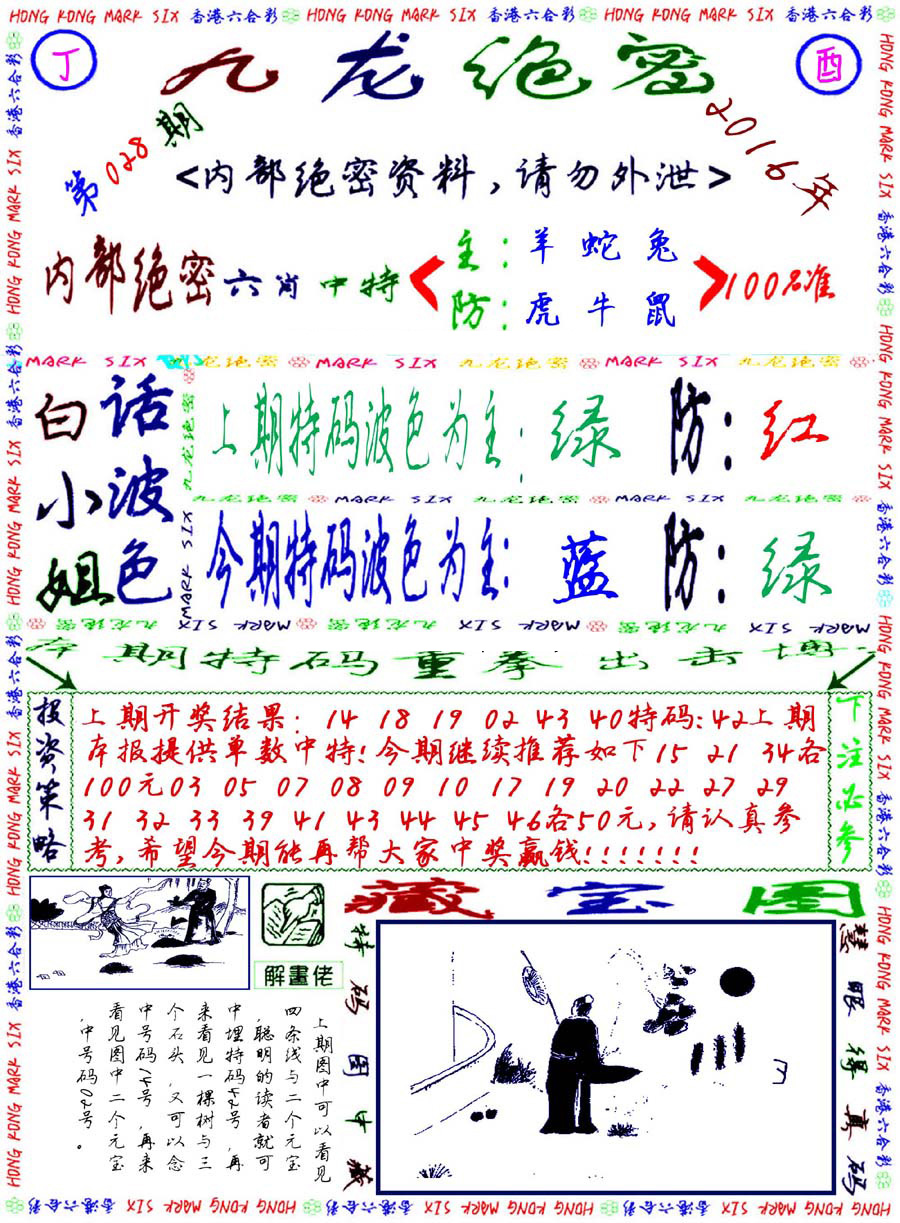 HONG KONG MARK SIX 香港六合彩 HONG KONG MARK SIX 香港六合彩 HONG KONG MARK SIX 香港六合彩
丁
九龙绝密
酉
第028期
2016年
<内部绝密资料,请勿外泄>
内部绝密六肖中特
主:羊 蛇 兔
防:虎 牛 鼠
100%准
MARK SIX 九龙绝密 MARK SIX 九龙绝密 MARK SIX 九龙绝密
白话波色
小姐
上期特码波色为主:绿 防:红
九龙绝密 MARK SIX 九龙绝密 MARK SIX 九龙绝密
今期特码波色为主:蓝 防:绿
MARK SIX 九龙绝密 MARK SIX 九龙绝密 MARK SIX 九龙绝密
期特码重拳出击
投资策略
上期开奖结果: 14 18 19 02 43 40特码:42上期
本报提供单数中特!今期继续推荐如下15 21 34各
100元03 05 07 08 09 10 17 19 20 22 27 29
31 32 33 39 41 43 44 45 46各50元,请认真参
考,希望今期能再帮大家中奖赢钱!!!!!!!
下注必参
解畫佬
藏宝图
上期图中可以看见
四条线与二个元宝
,聪明的读者就可
中埋特码42号,再
来看见一棵树与三
个石头,又可以念
中号码14号,再来
看见图中二个元宝
,中号码02号。
特码图中藏
慧眼得真码
HONG KONG MARK SIX 香港六合彩 HONG KONG MARK SIX 香港六合彩 HONG KONG MARK SIX 香港六合彩